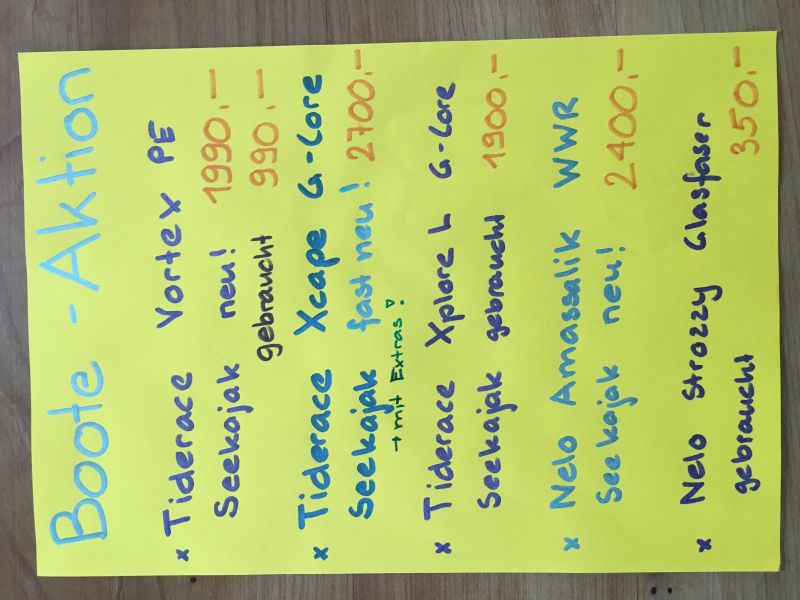 Boote - Aktion
x Tiderace Vortex PE
Seekajak neu! 1990.-
gebraucht 990.-
x Tiderace Xcape G-Core
Seekajak fast neu! 2700.-
→ mit Extras!
x Tiderace Xplore L G-Core
Seekajak gebraucht 1900.-
x Nelo Amassalik WWR
Seekajak neu! 2400.-
x Nelo Strozzy Glasfaser
gebraucht 350.-